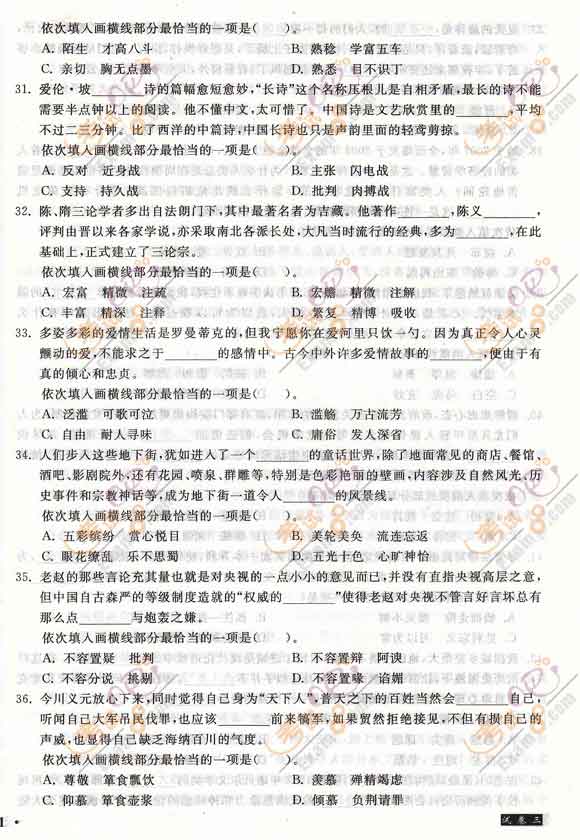 依次填入画横线部分最恰当的一项是(    )。
A. 陌生  才高八斗    B. 熟稔  学富五车
C. 亲切  胸无点墨    D. 熟悉  目不识丁
31. 爱伦·坡______诗的篇幅愈短愈妙,“长诗”这个名称压根儿是自相矛盾,最长的诗不能
需要半点钟以上的阅读。他不懂中文,太可惜了。中国诗是文艺欣赏里的______,平均
不过二三分钟。比了西洋的中篇诗,中国长诗也只是声韵里面的轻鸢剪掠。
依次填入画横线部分最恰当的一项是(    )。
A. 反对  近身战    B. 主张  闪电战
C. 支持  持久战    D. 批判  肉搏战
32. 陈、隋三论学者多出自法朗门下,其中最著名者为吉藏。他著作______,陈义______,
评判由晋以来各家学说,亦采取南北各派长处,大凡当时流行的经典,多为______,在此
基础上,正式建立了三论宗。
依次填入画横线部分最恰当的一项是(    )。
A. 宏富  精微  注疏    B. 宏赡  精微  注解
C. 丰富  精深  注释    D. 繁复  精博  吸收
33. 多姿多彩的爱情生活是罗曼蒂克的,但我宁愿你在爱河里只饮一勺。因为真正令人心灵
颤动的爱,不能求之于______的感情中。古今中外许多爱情故事的______,便由于有
真的倾心和忠贞。
依次填入画横线部分最恰当的一项是(    )。
A. 泛滥  可歌可泣    B. 滥觞  万古流芳
C. 自由  耐人寻味    D. 庸俗  发人深省
34. 人们步入这些地下街,犹如进入了一个______的童话世界,除了地面常见的商店、餐馆、
酒吧、影剧院外,还有花园、喷泉、群雕等,特别是色彩艳丽的壁画,内容涉及自然风光、历
史事件和宗教神话等,成为地下街一道令人______的风景线。
依次填入画横线部分最恰当的一项是(    )。
A. 五彩缤纷  赏心悦目    B. 美轮美奂  流连忘返
C. 眼花缭乱  乐不思蜀    D. 五光十色  心旷神怡
35. 老赵的那些言论充其量也就是对央视的一点小小的意见而已,并没有直指央视高层之意,
但中国自古森严的等级制度造就的“权威的______”使得老赵对央视不管言好言坏总有
那么点______与炮轰之嫌。
依次填入画横线部分最恰当的一项是(    )。
A. 不容置疑  批判    B. 不容置辩  阿谀
C. 不容分说  挑剔    D. 不容置喙  谄媚
36. 今川义元放心下来,同时觉得自己身为“天下人”,普天之下的百姓当然会______自己,
听闻自己大军吊民伐罪,也应该______前来犒军,如果贸然拒绝接见,不但有损自己的
声威,也显得自己缺乏海纳百川的气度。
依次填入画横线部分最恰当的一项是(    )。
A. 尊敬  箪食瓢饮    B. 羡慕  殚精竭虑
C. 仰慕  箪食壶浆    D. 倾慕  负荆请罪
试卷三